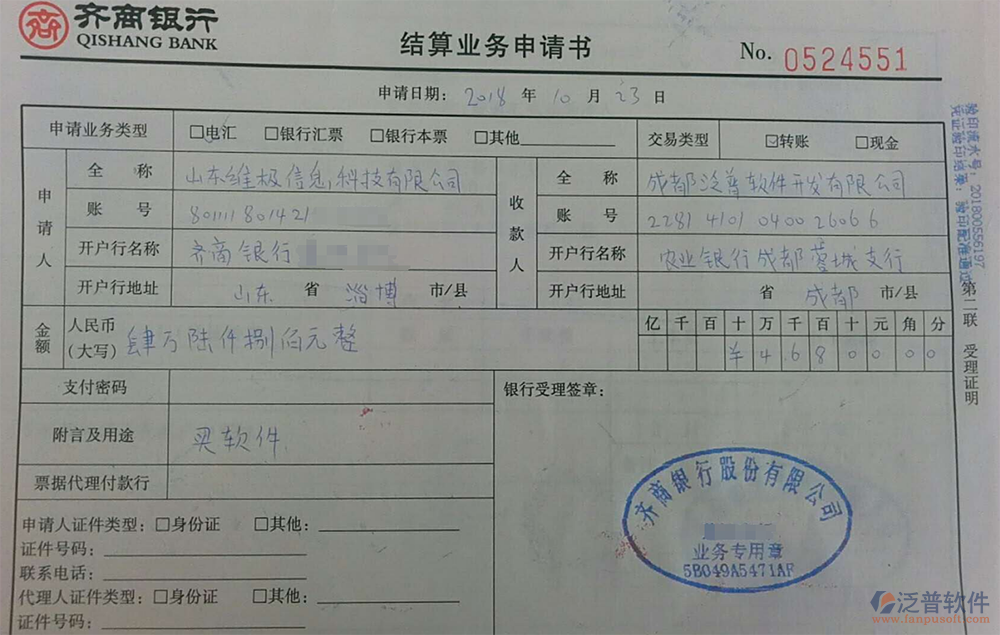 齐商银行
QISHANG BANK
结算业务申请书
No. 0524551
申请日期: 2018 年 10 月 23 日
申请业务类型 □电汇 □银行汇票 □银行本票 □其他 交易类型 ☑转账 □现金
申请人
全称 山东维极信息科技有限公司
账号 801111801421
开户行名称 齐商银行
开户行地址 山东 省 淄博 市/县
收款人
全称 成都泛普软件开发有限公司
账号 2281 4101 0400 26066
开户行名称 农业银行成都蓉城支行
开户行地址 省 成都 市/县
金额 人民币(大写) 肆万陆仟捌佰元整
亿 千 百 十 万 千 百 十 元 角 分
¥ 4 6 8 0 0 0 0
支付密码
银行受理签章:
附言及用途 买软件
票据代理付款行
申请人证件类型: □身份证 □其他:
证件号码:
联系电话:
代理人证件类型: □身份证 □其他:
证件号码:
齐商银行股份有限公司
业务专用章
5B049A5471AF
验印流水号: 201800556197
凭证验印结果: 验印配准通过
第二联 受理证明
泛普软件
www.fanpusoft.com